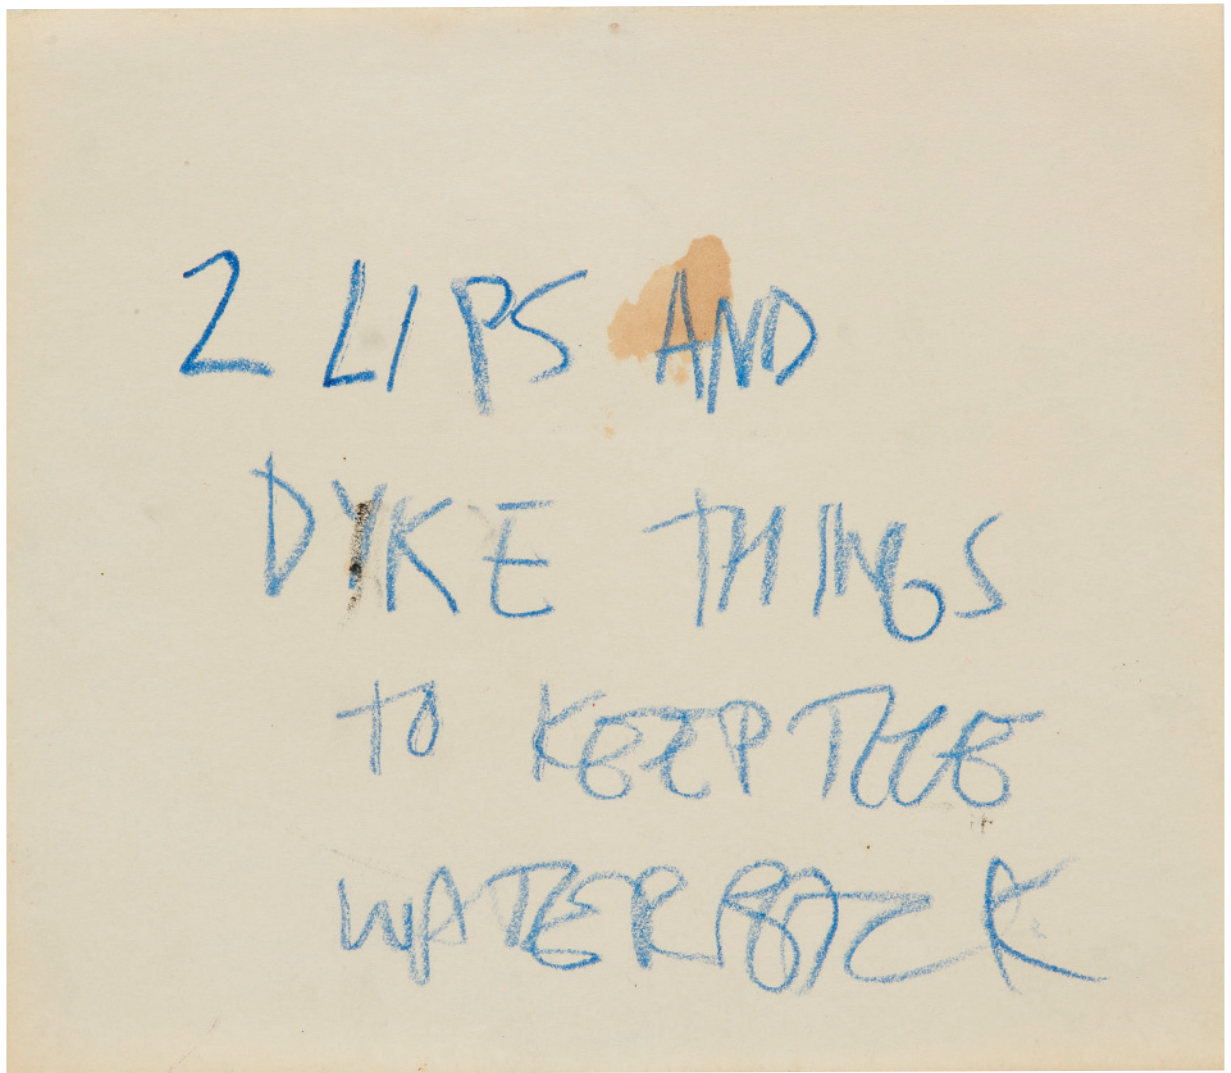 2 LIPS AND
DYKE THINGS
TO KEEP THE
WATER BACK